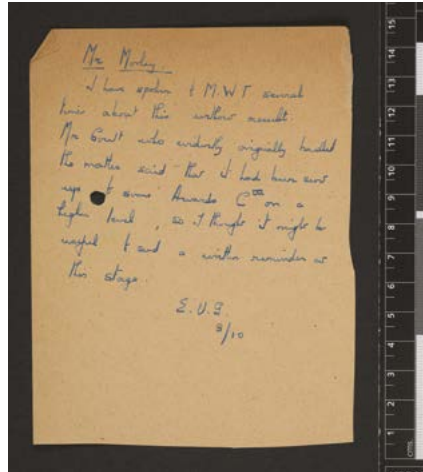 Mr Morley.
I have spoken to M.W.T. several
times about this without result.
Mr Gowt who evidently originally handled
the matter said that it had been sent
up to some Awards Cttee on a
higher level, so I thought it might be
useful to send a written reminder at
this stage.
E.U.G.
8/10